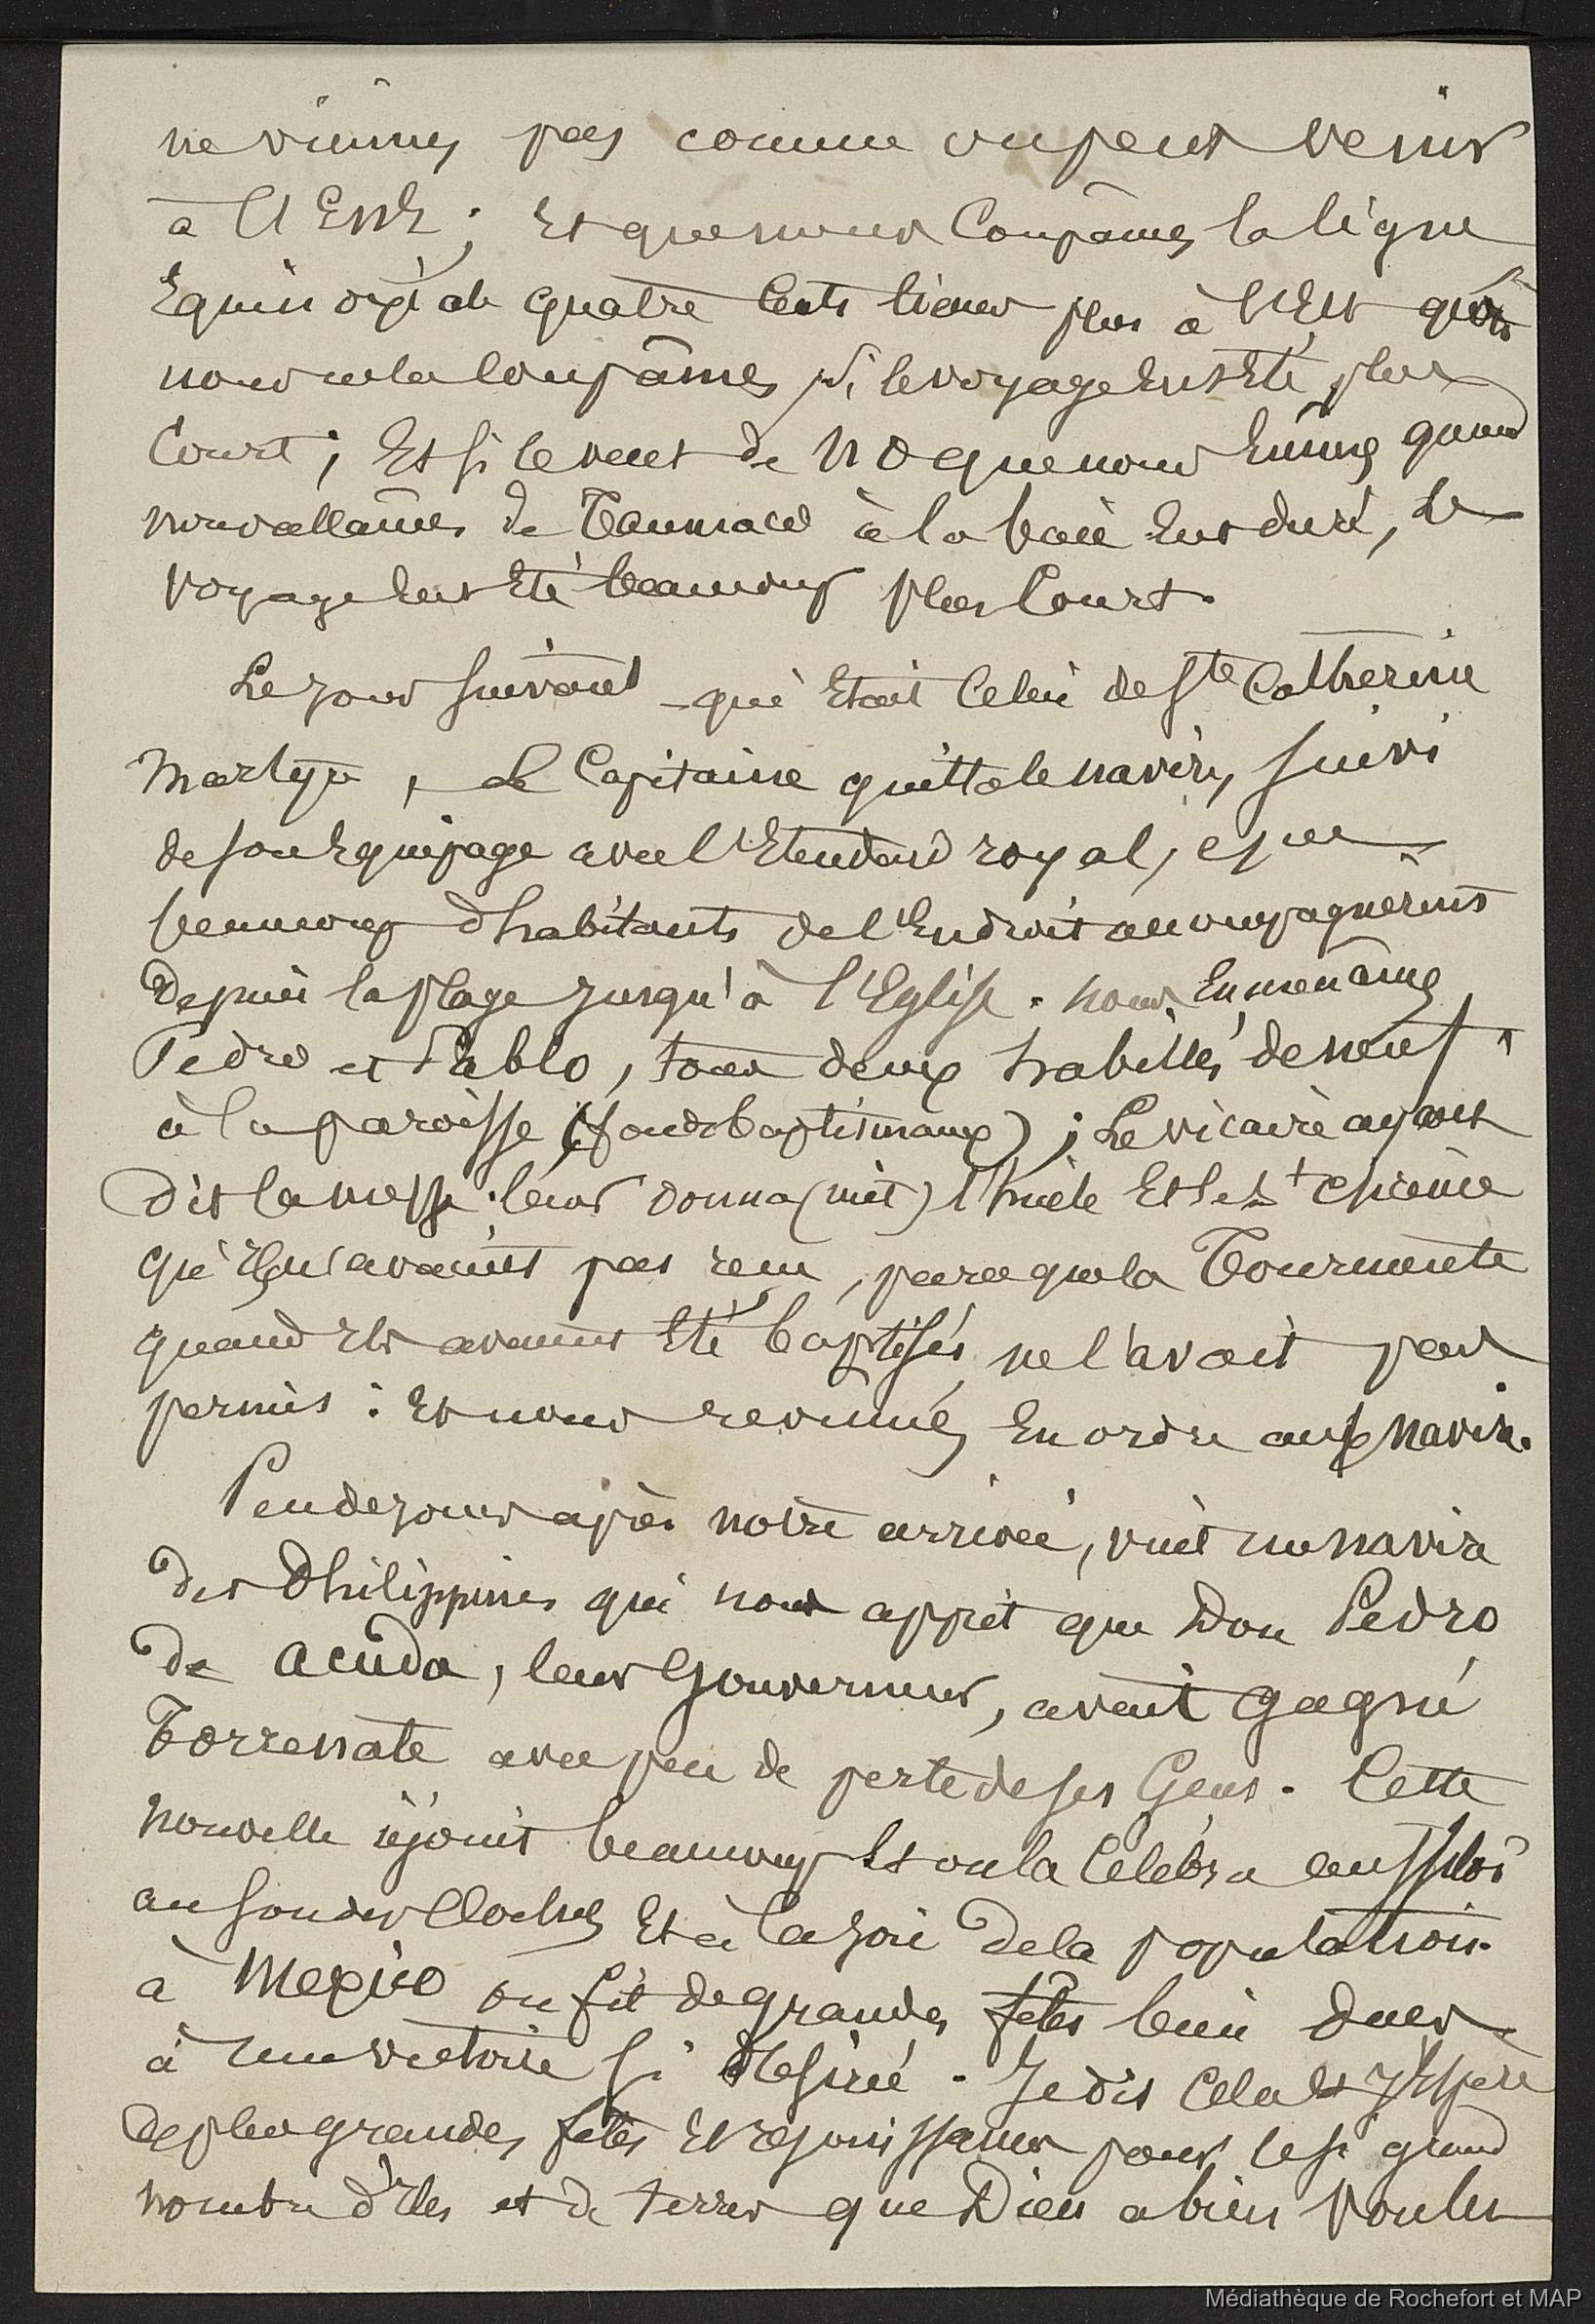 ne vinmes pas comme on peut venir
à l'Est ; Et que nous Coupâmes la ligne
Equinoxiale quatre Cents lieues plus à l'Est que
nous ne la Coupâmes, si le voyage Eut Eté plus
Court ; Et si le vent de NO que nous Eûmes quand
nous allâmes de Taumaco à la baie Eut duré, le
voyage Eut Eté beaucoup plus Court.
Le jour suivant qui Etait Celui de Ste Catherine
Martyre, Le Capitaine quitta le navire, suivi
de son Equipage avec l'Etendard royal, que
beaucoup d'habitants de l'Endroit accompagnèrent
depuis la plage jusqu'à l'Eglise. nous Emmenâmes
Pedro et Pablo, tous deux habillés de neuf
à la paroisse (fonds baptismaux) ; Le vicaire ayant
dit la messe leur donna (mit) l'huile Et le St chrême
qu'Ils n'avaient pas reçu, parce que la Tourmente
quand Ils avaient Eté baptisés ne l'avait pas
permis : Et nous revinmes En ordre aux navires.
Peu de jours après notre arrivée, vint un navire
des Philippines qui nous apprit que Don Pedro
de Acuda, leur Gouverneur, avait gagné
Torrenate avec peu de perte de ses Gens. Cette
nouvelle réjouit beaucoup Et on la Célébra aussitôt
au son des Cloches Et à la joie de la population.
à Mexico on fit de grandes fêtes bien dues
à une victoire si désirée. Je dis Cela Et J'Espère
de plus grandes fêtes Et réjouissances pour le si grand
nombre d'Iles et de terres que Dieu a bien voulu
Médiathèque de Rochefort et MAP